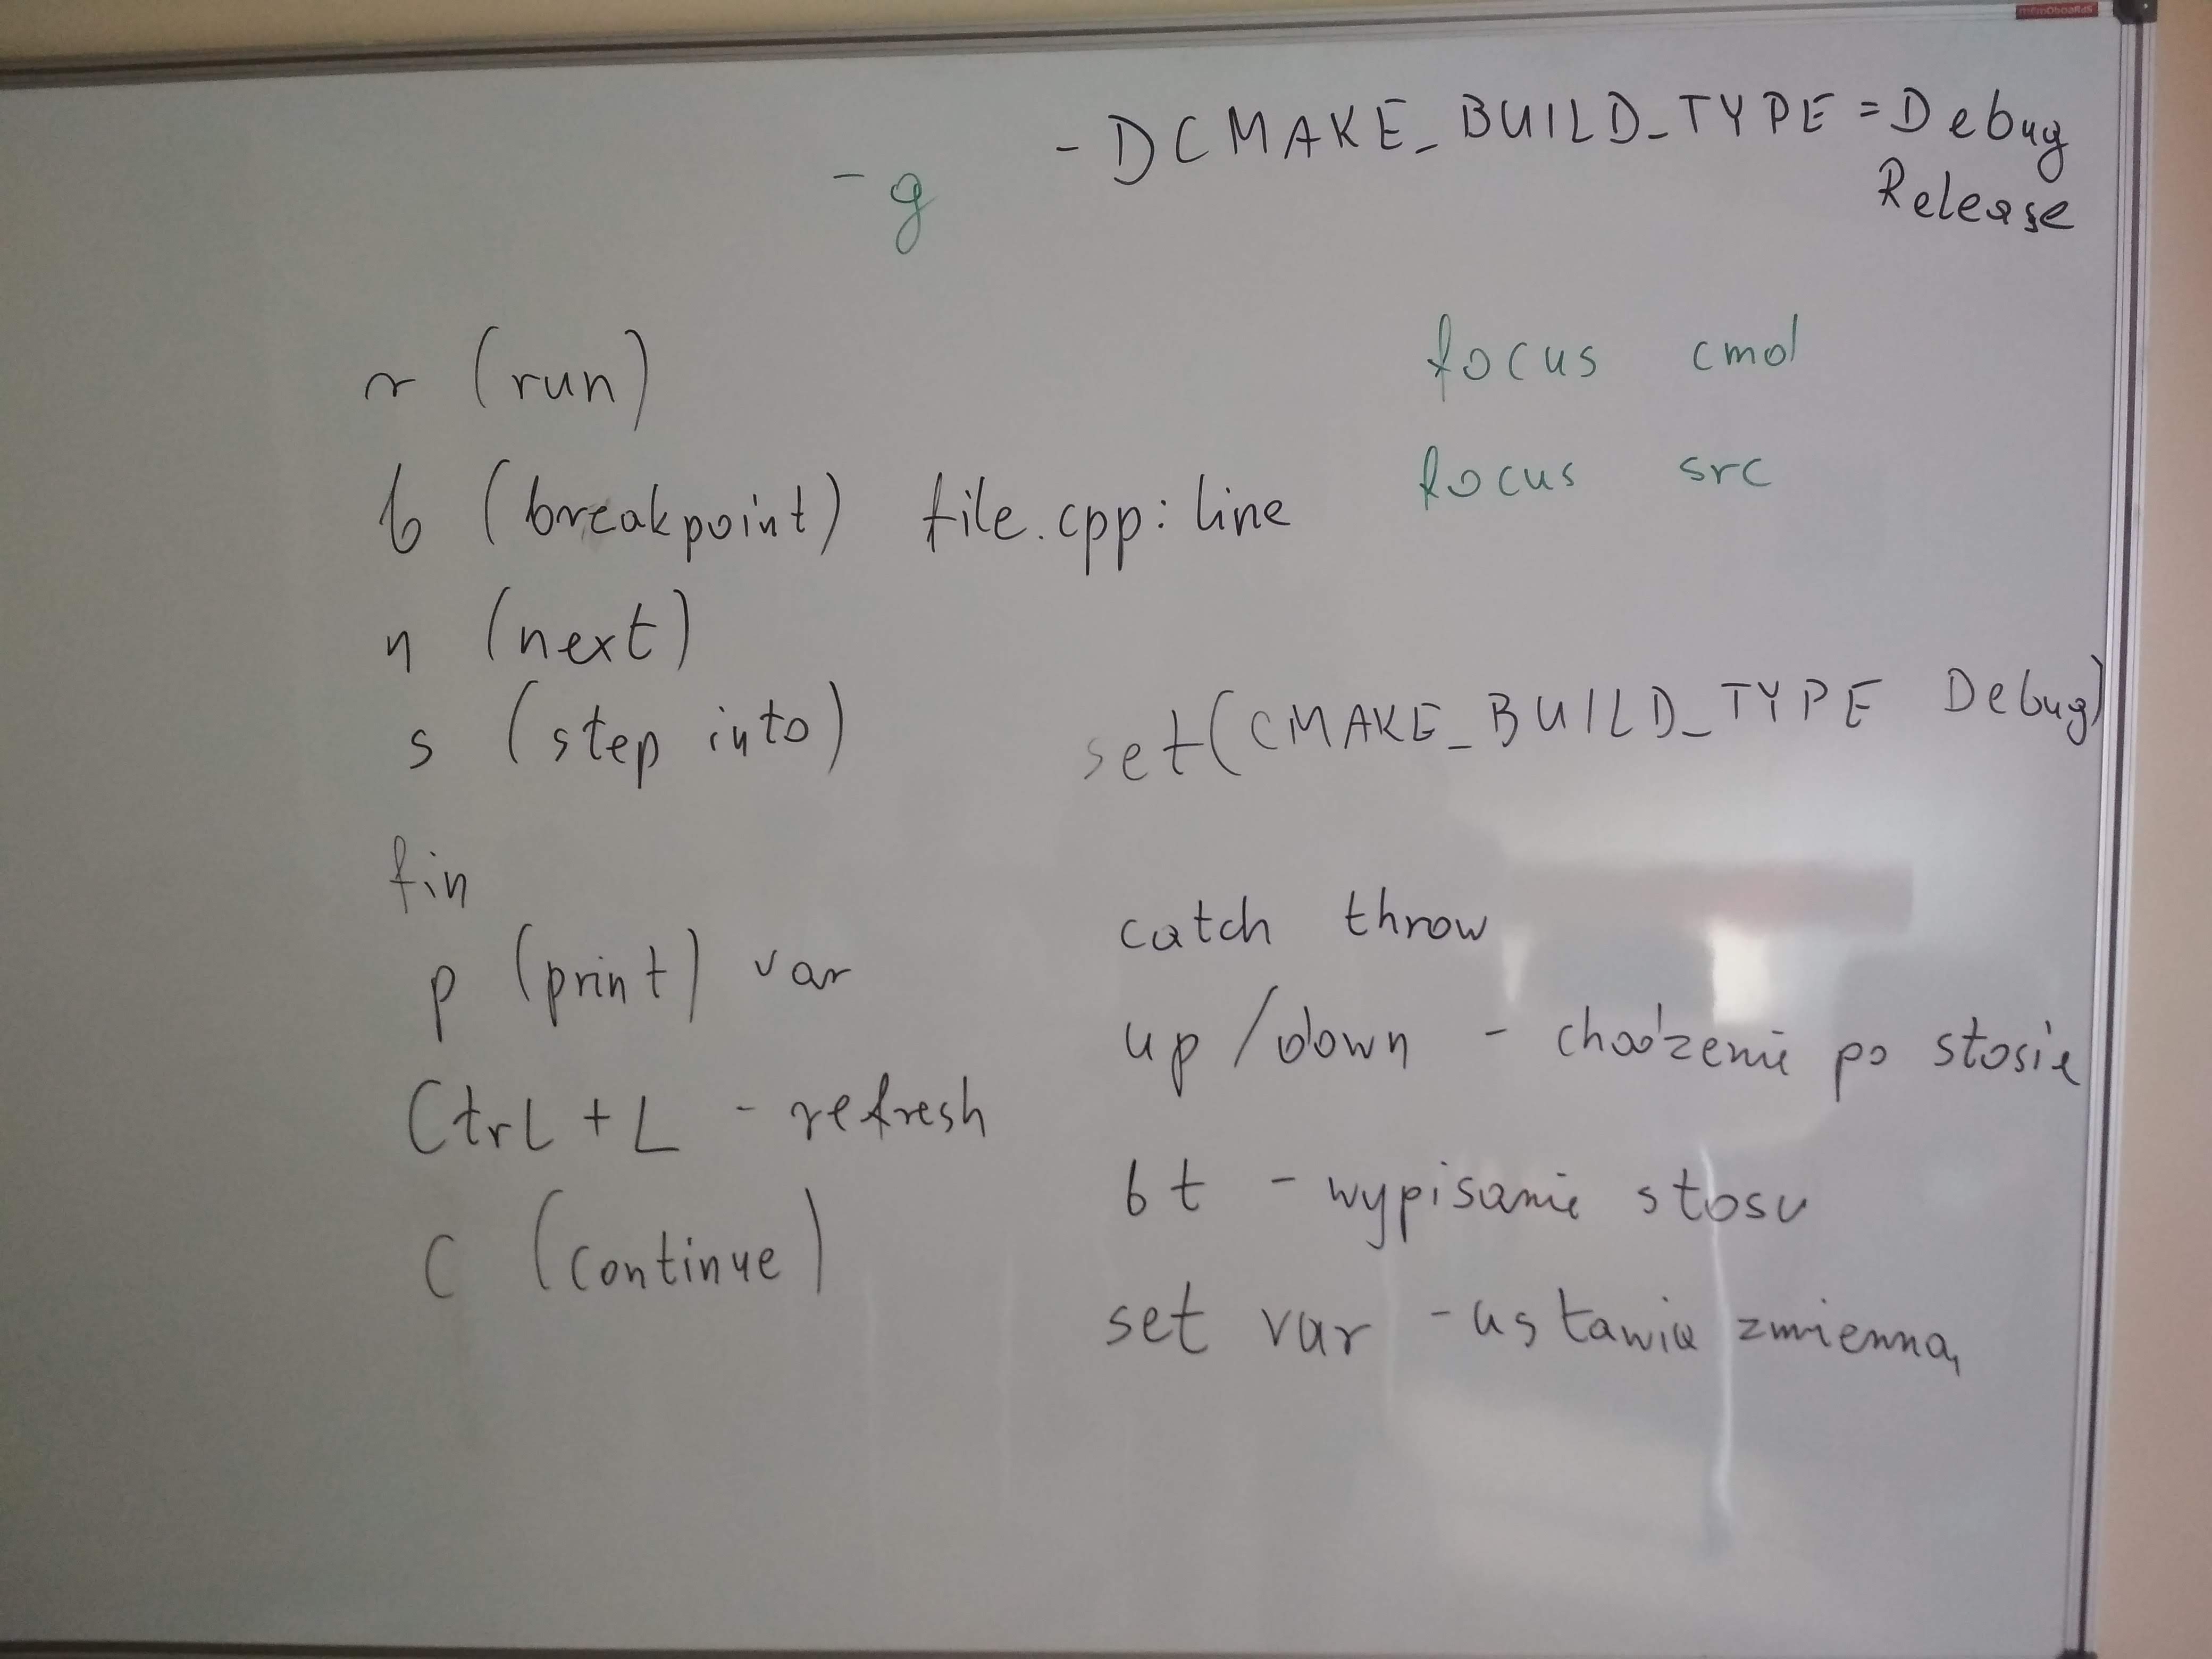 -DCMAKE_BUILD_TYPE=Debug
Release
-g
r (run)
b (breakpoint) file.cpp:line
n (next)
s (step into)
fin
p (print) var
CtrL + L - refresh
c (continue)
focus cmd
focus src
set(CMAKE_BUILD_TYPE Debug)
catch throw
up/down - chodzenie po stosie
bt - wypisanie stosu
set var - ustawia zmienną